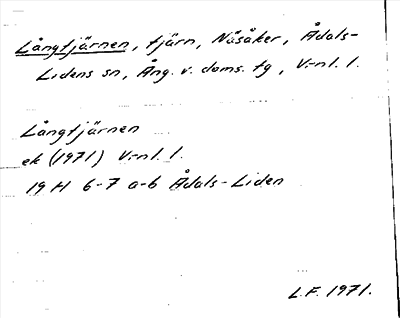 Långtjärnen, tjärn, Näsåker, Ådals-
Lidens sn, Ång. v. doms. tg, V:nl. l.
Långtjärnen
ek (1971) V:nl. l.
19 H 6-7 a-b Ådals-Liden
L.F. 1971.